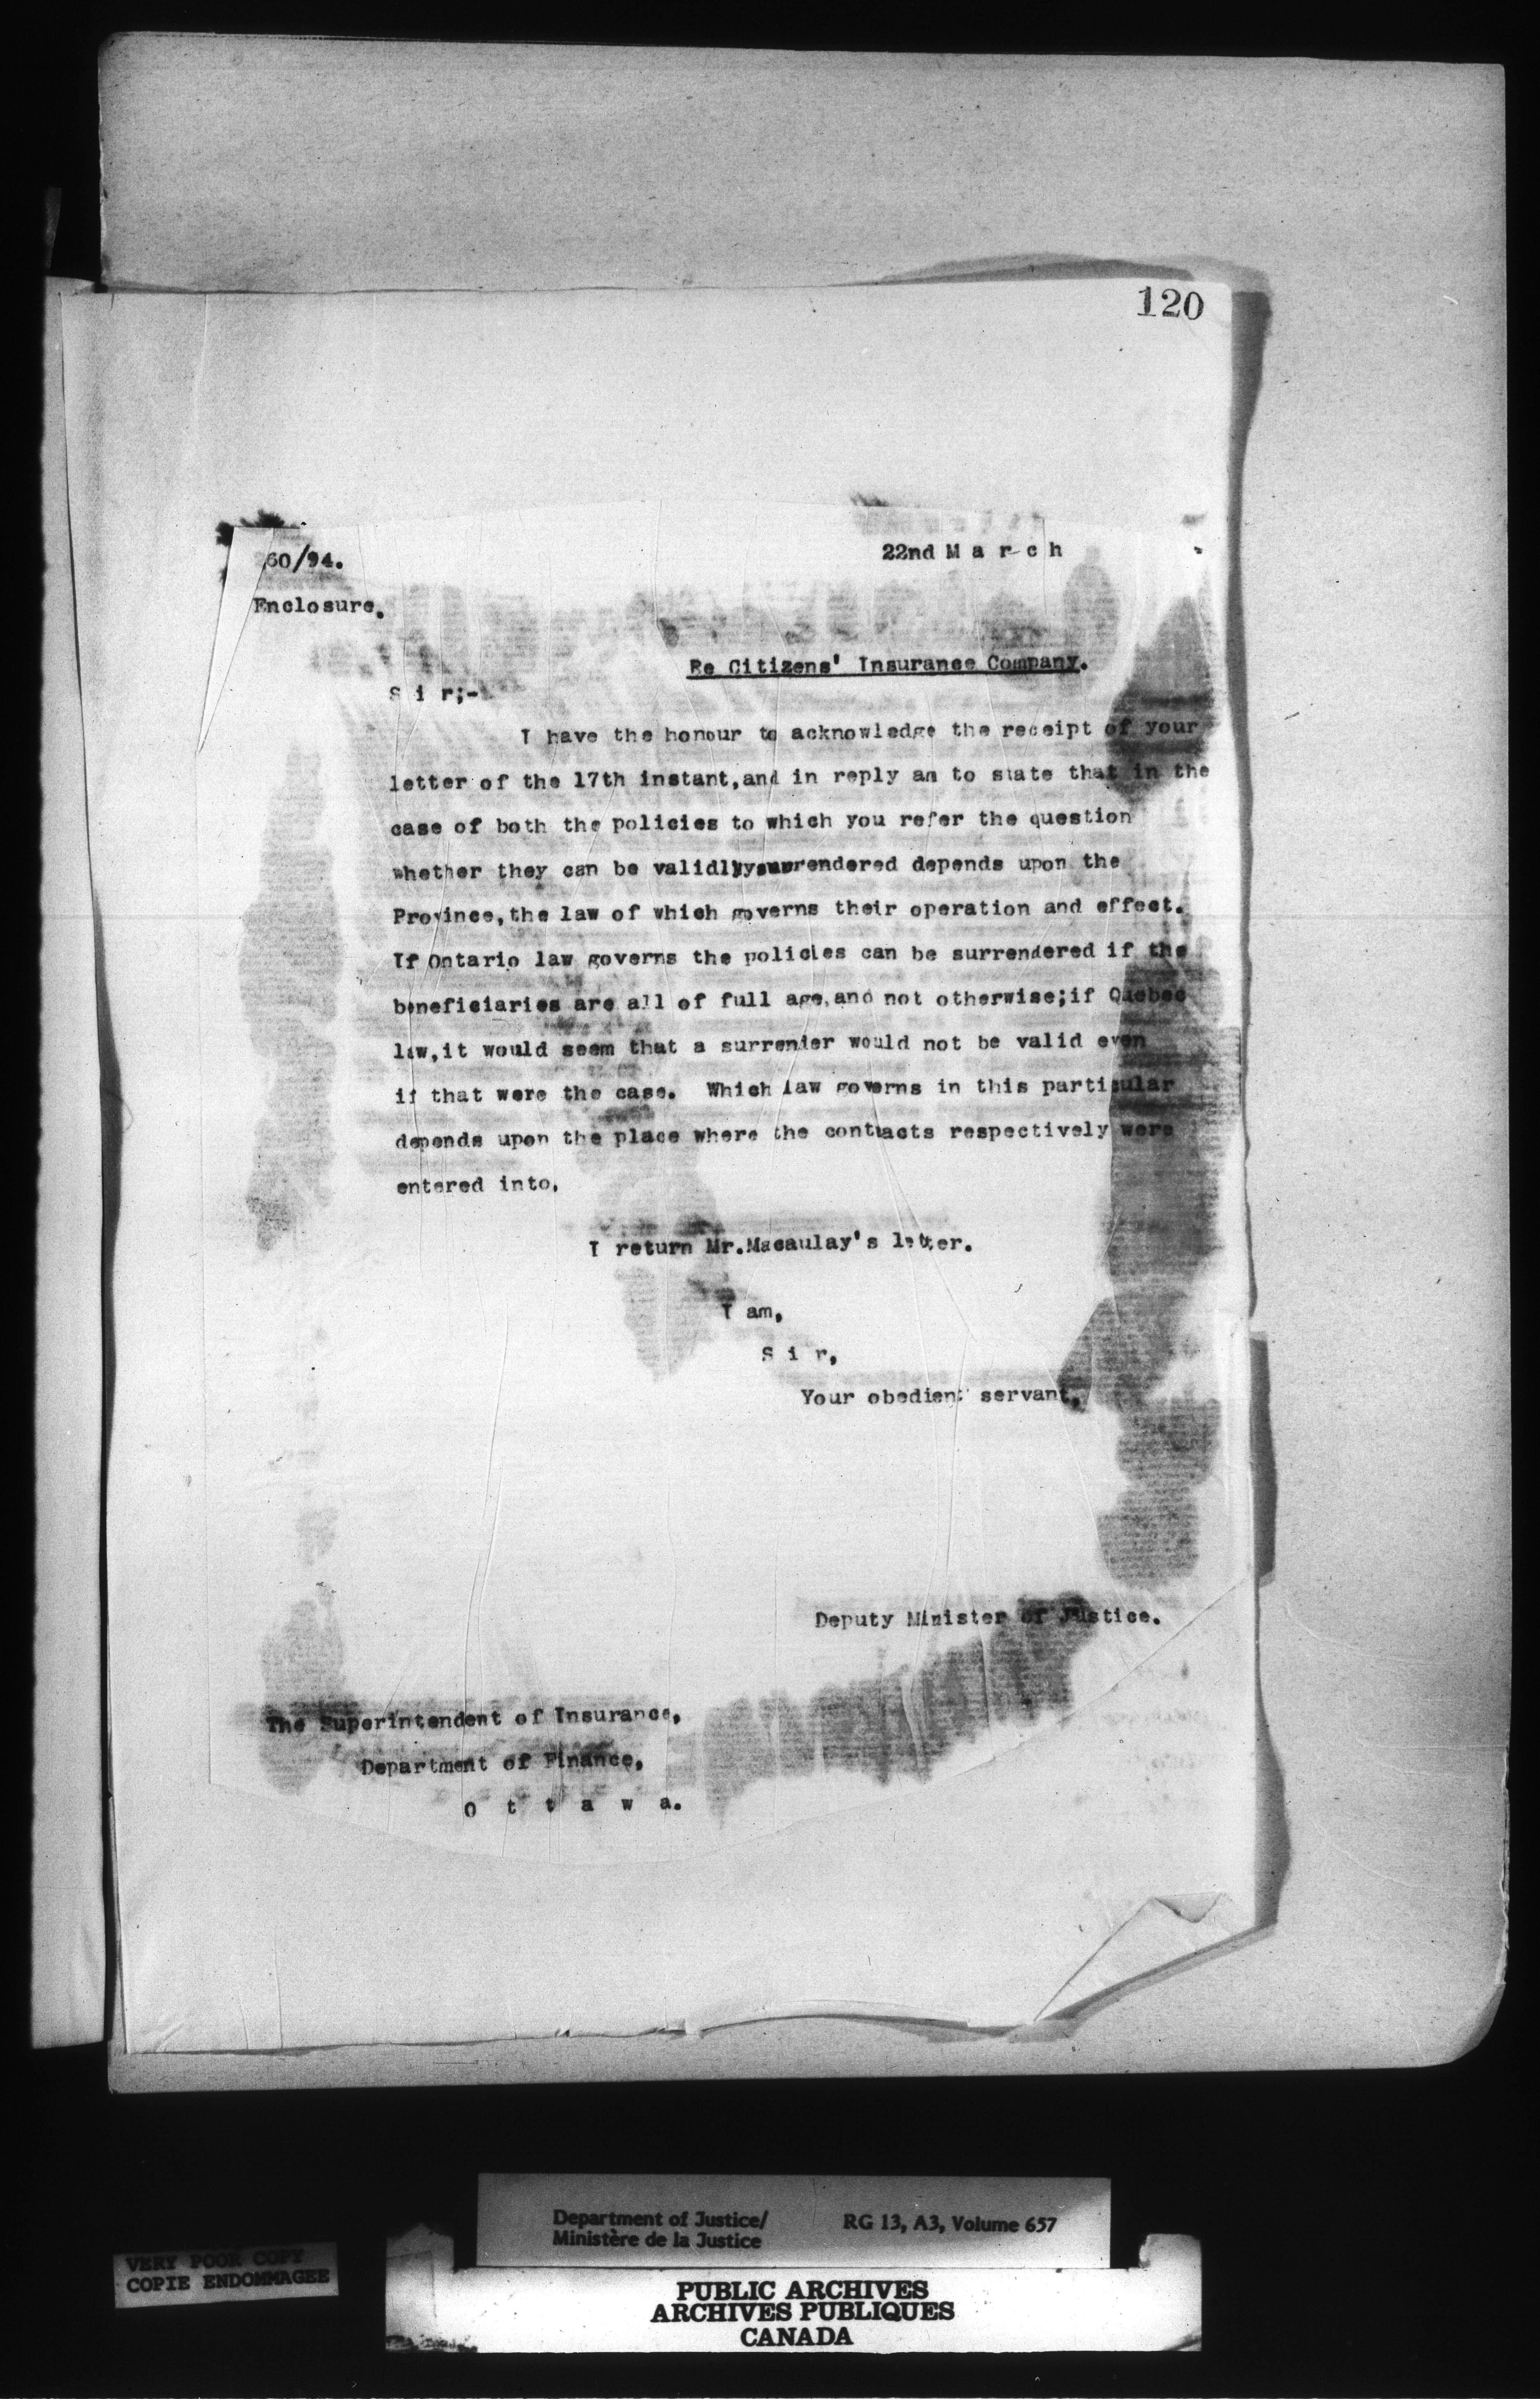 120
260/94.
22nd M a r c h
Enclosure.
Re Citizens' Insurance Company.
S i r;-
I have the honour to acknowledge the receipt of your
letter of the 17th instant,and in reply am to state that in the
case of both the policies to which you refer the question
whether they can be validly surrendered depends upon the
Province,the law of which governs their operation and effect.
If Ontario law governs the policies can be surrendered if the
beneficiaries are all of full age,and not otherwise;if Quebec
law,it would seem that a surrender would not be valid even
if that were the case. Which law governs in this particular
depends upon the place where the contracts respectively were
entered into.
I return Mr.Macaulay's letter.
I am,
S i r,
Your obedient servant,
Deputy Minister of Justice.
The Superintendent of Insurance,
Department of Finance,
O t t a w a.
Department of Justice/
Ministère de la Justice
RG 13, A3, Volume 657
VERY POOR COPY
COPIE ENDOMMAGEE
PUBLIC ARCHIVES
ARCHIVES PUBLIQUES
CANADA